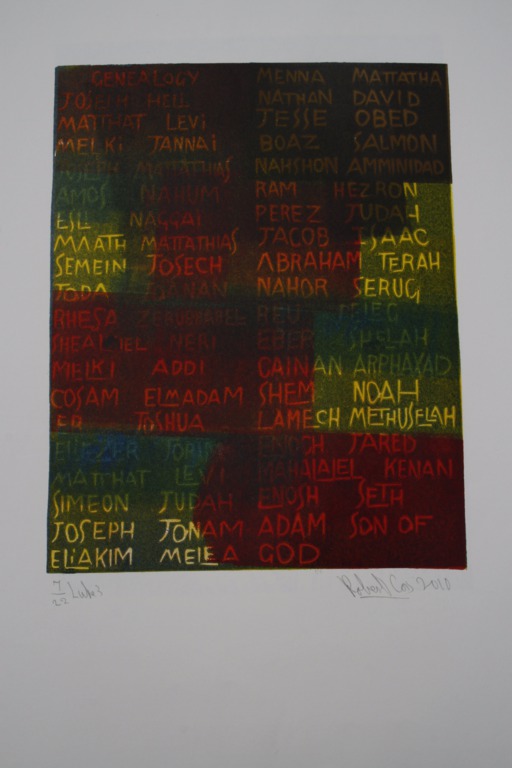 GENEALOGY
JOSEPH HELI
MATTHAT LEVI
MELKI JANNAI
JOSEPH MATTATHIAS
AMOS NAHUM
ESLI NAGGAI
MAATH MATTATHIAS
SEMEIN JOSECH
JODA JOANAN
RHESA ZERUBBABEL
SHEALTIEL NERI
MELKI ADDI
COSAM ELMADAM
ER JOSHUA
ELIEZER JORIM
MATTHAT LEVI
SIMEON JUDAH
JOSEPH JONAM
ELIAKIM MELEA
MENNA MATTATHA
NATHAN DAVID
JESSE OBED
BOAZ SALMON
NAHSHON AMMINIDAD
RAM HEZRON
PEREZ JUDAH
JACOB ISAAC
ABRAHAM TERAH
NAHOR SERUG
REU PELEG
EBER SHELAH
CAINAN ARPHAXAD
SHEM NOAH
LAMECH METHUSELAH
ENOCH JARED
MAHALALEL KENAN
ENOSH SETH
ADAM SON OF
GOD
7/22 Luke 3
Robert 2010